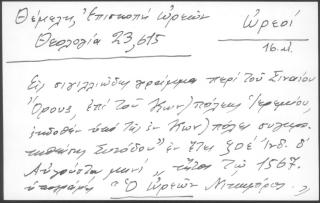 Θέμελη, Ἐπισκοπή ὠρεῶν
Θεολογία 23, 615
Ὠρεοί
16.αἰ.
Εἰς σιγιλλιῶδες γράμμα περί τοῦ Σιναίου
Ὄρους, ἐπί τοῦ Κων/πόλεως Ἱερεμίου,
ἐκδοθέν ὑπό τῆς ἐν Κων/πόλει συγκρο-
τηθείσης Συνόδου" ἐν ἔτει ζοε Ἰνδ. δ'
Αὐγούστῳ μηνί, τῷ 1567.
ὑπογράφει "Ὁ Ὠρεῶν